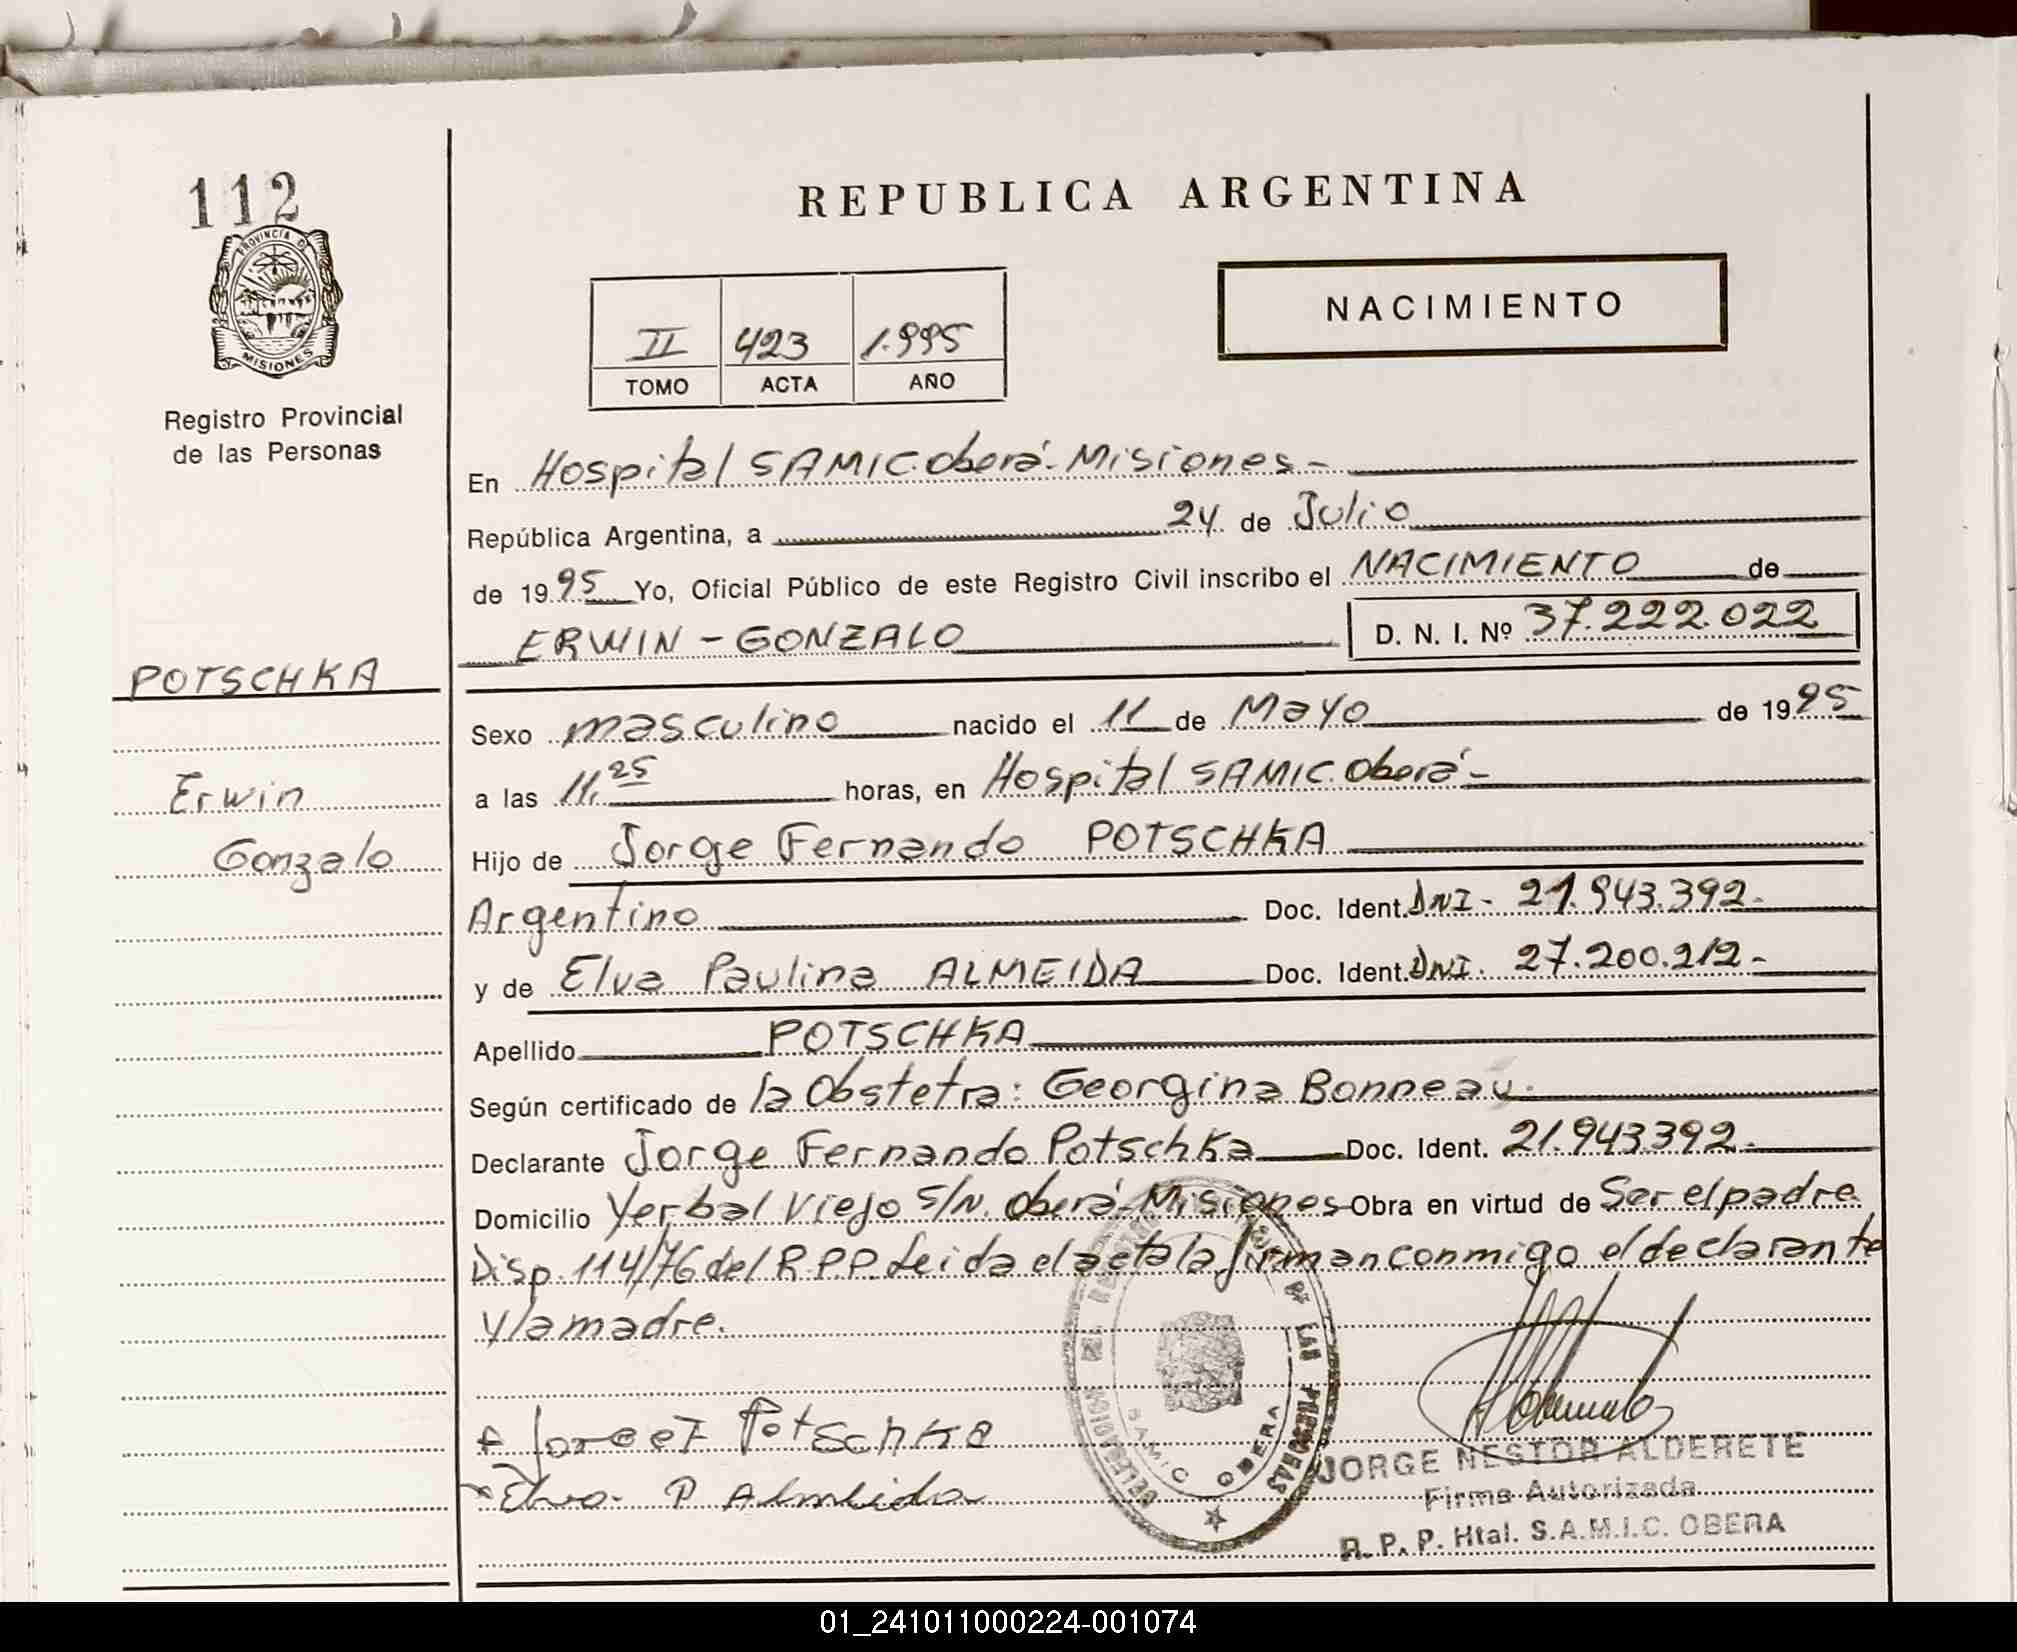 112
PROVINCIA D
MISIONES
Registro Provincial
de las Personas
POTSCHKA
Erwin
Gonzalo
REPUBLICA ARGENTINA
II 423 1.995
TOMO ACTA AÑO
NACIMIENTO
En Hospital SAMIC. Oberá - Misiones -
República Argentina, a 24 de Julio
de 1995 Yo, Oficial Público de este Registro Civil inscribo el NACIMIENTO de
ERWIN - GONZALO D. N. I. Nº 37.222.022
Sexo masculino nacido el 11 de Mayo de 1995
a las 11,25 horas, en Hospital SAMIC. Oberá -
Hijo de Jorge Fernando POTSCHKA
Argentino Doc. Ident. DNI - 21.943.392 -
y de Elva Paulina ALMEIDA Doc. Ident. DNI. 27.200.212 -
Apellido POTSCHKA
Según certificado de la Obstetra: Georgina Bonneau.
Declarante Jorge Fernando Potschka Doc. Ident. 21.943392 -
Domicilio Yerbal Viejo S/N. Oberá - Misiones - Obra en virtud de Ser el padre
Disp. 114/76 del R.P.P. Leida el acta la firman conmigo el declarante
y la madre.
DELEGACION DEL REGISTRO DE LAS PERSONAS
SAMIC OBERA
Jorge F Potschka
Elva P Almeida
JORGE NESTOR ALDERETE
Firma Autorizada
R. P. P. Htal. S.A.M.I.C. OBERA
01_241011000224-001074